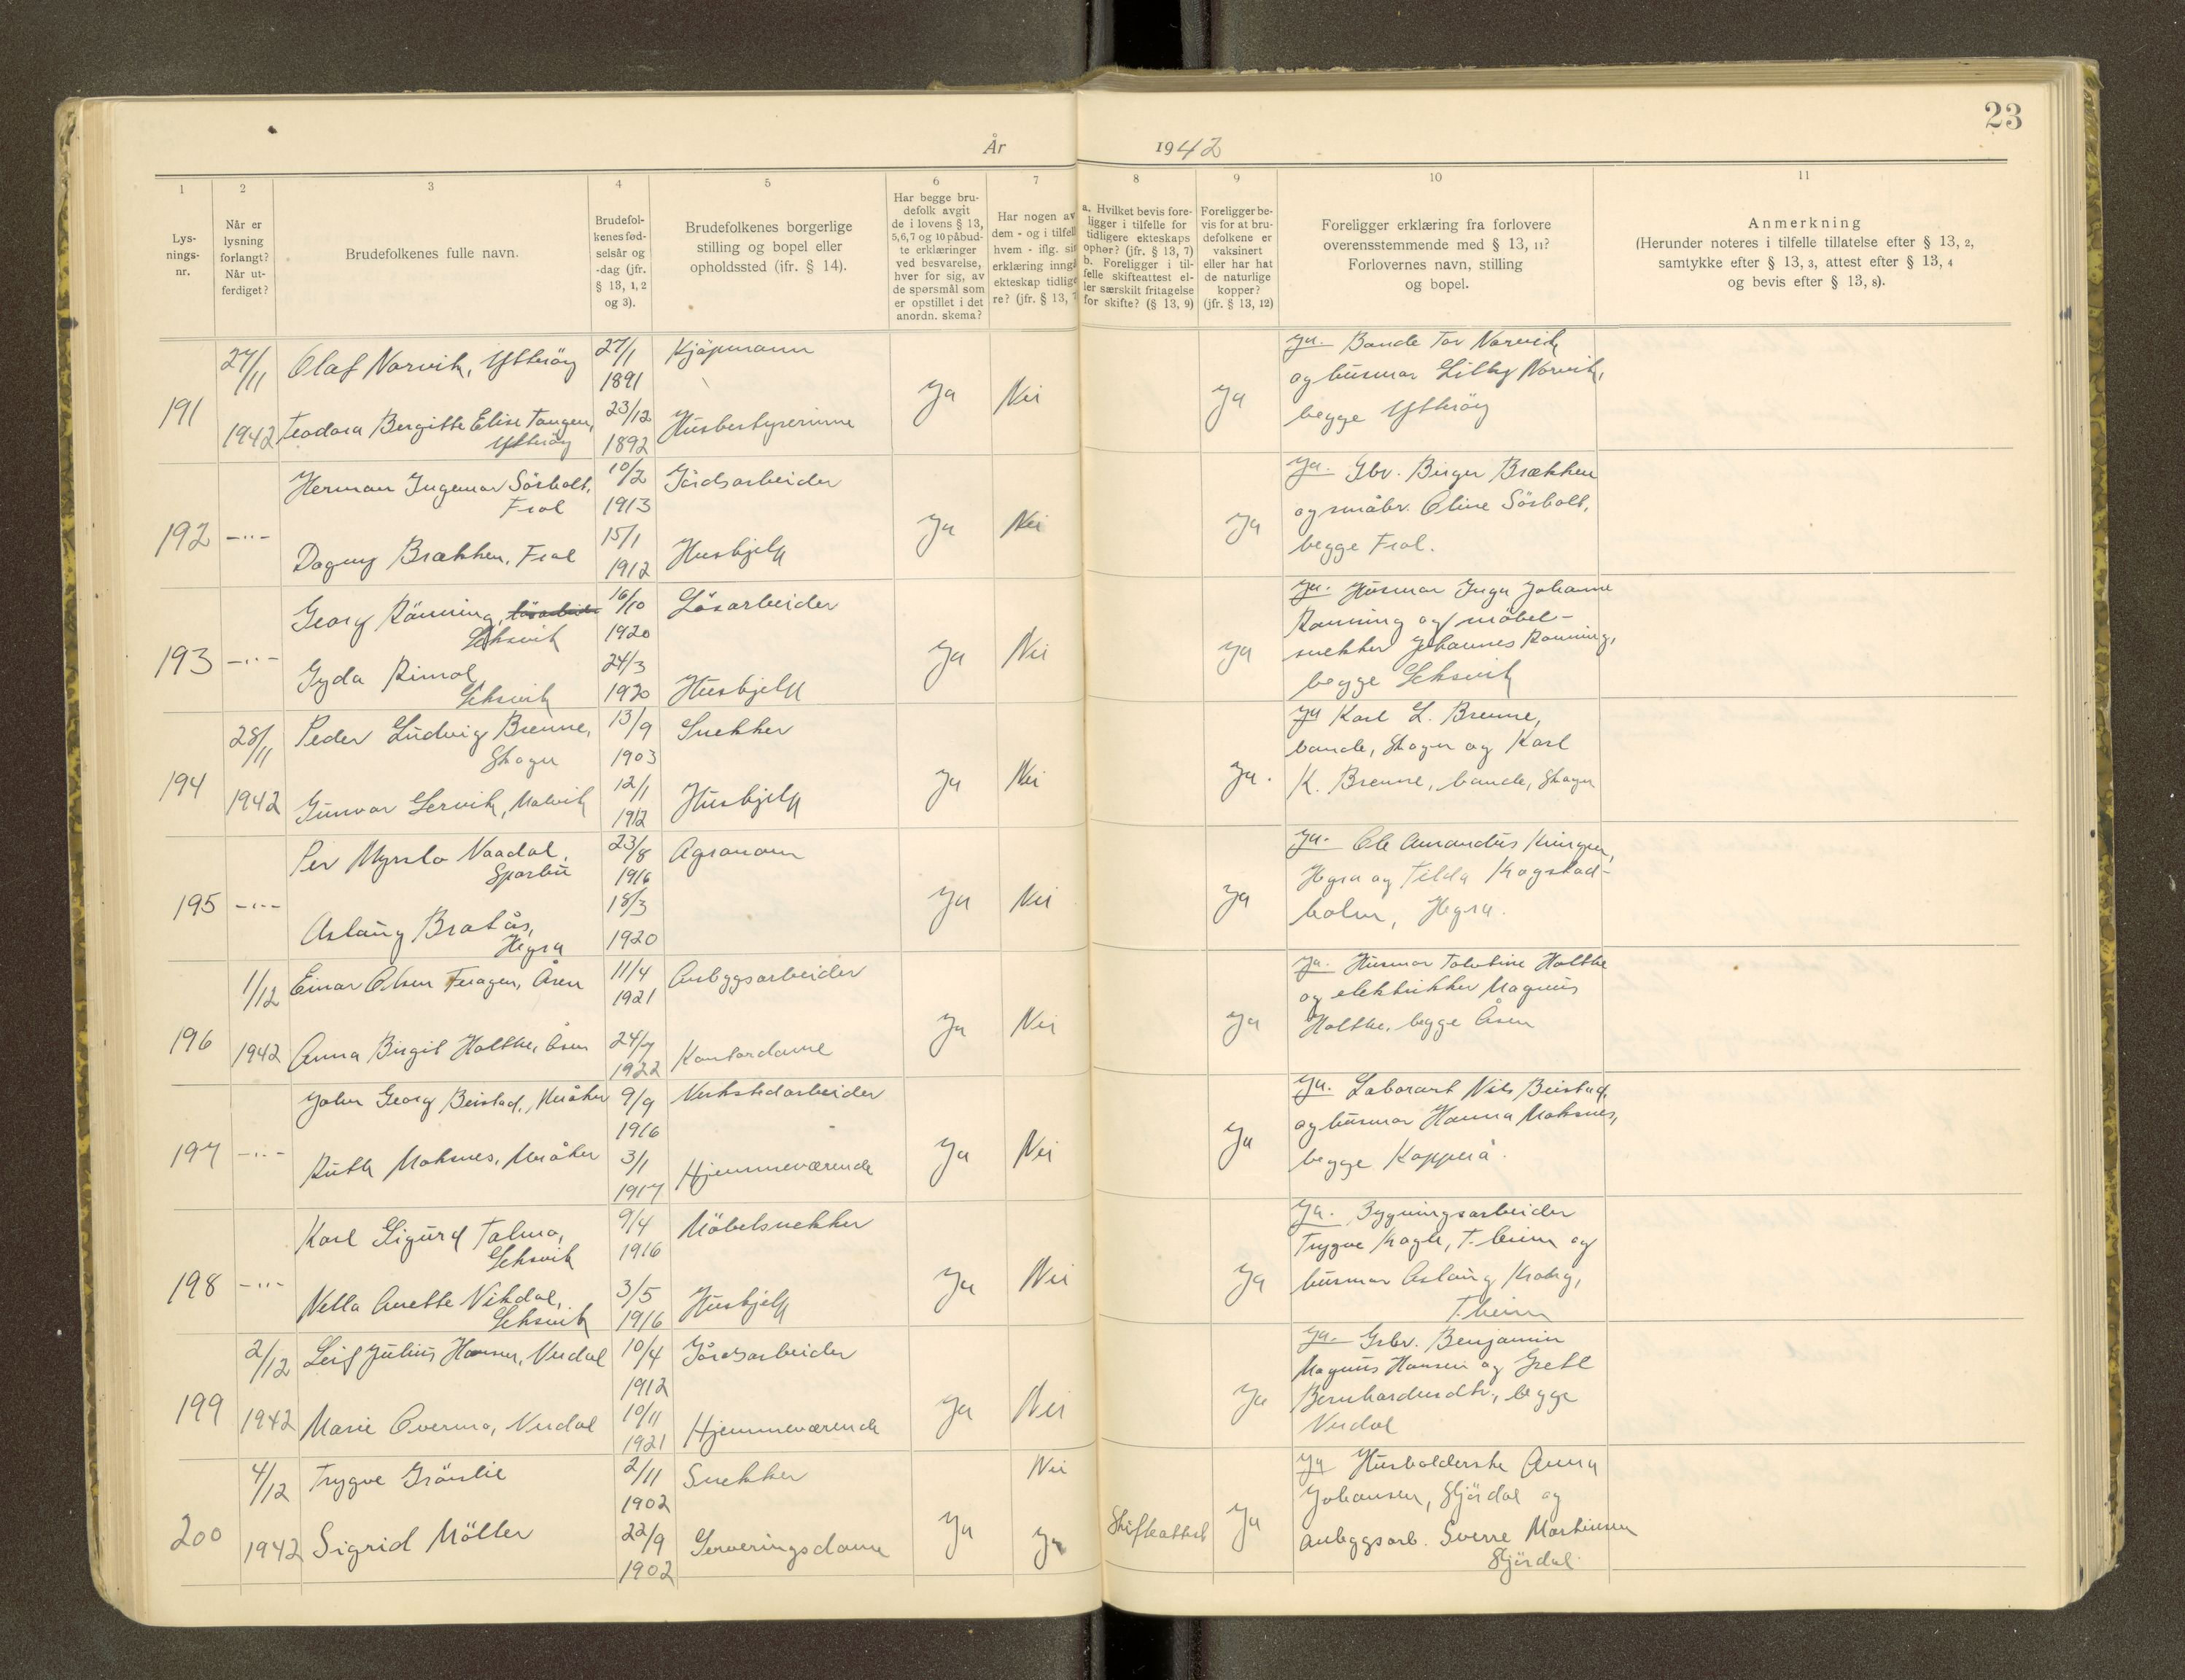 23
År 1942
1 2 3 4 5 6 7 8 9 10 11
Lys-
nings-
nr.
Når er
lysning
forlangt?
Når ut-
ferdiget?
Brudefolkenes fulle navn.
Brudefol-
kenes fød-
selsår og
-dag (jfr.
§ 13, 1, 2
og 3).
Brudefolkenes borgerlige
stilling og bopel eller
opholdssted (ifr. § 14).
Har begge bru-
defolk avgit
de i lovens § 13,
5,6,7 og 10 påbud-
te erklæringer
ved besvarelse,
hver for sig, av
de spørsmål som
er opstillet i det
anordn. skema?
Har nogen av
dem - og i tilfell
hvem - iflg. sin
erklæring inngå
ekteskap tidlige
re? (jfr. § 13, 7
a. Hvilket bevis fore-
ligger i tilfelle for
tidligere ekteskaps
ophør? (jfr. § 13, 7)
b. Foreligger i til-
felle skifteattest el-
ler særskilt fritagelse
for skifte? (§ 13, 9)
Foreligger be-
vis for at bru-
defolkene er
vaksinert
eller har hat
de naturlige
kopper?
(jfr. § 13, 12)
Foreligger erklæring fra forlovere
overensstemmende med § 13, 11?
Forlovernes navn, stilling
og bopel.
Anmerkning
(Herunder noteres i tilfelle tillatelse efter § 13, 2,
samtykke efter § 13, 3, attest efter § 13, 4
og bevis efter § 13, 8).
191
27/11
1942
Olaf Norvik, Ytterøy
27/1
1891
Kjøpmann
Teodora Bergitte Elise Tangen,
Ytterøy
23/12
1892
Husbestyrerinne
Ja Nei Ja
Ja. Bonde Tor Norvik
og husmor Lilly Norvik,
begge Ytterøy
192
-"-
Herman Ingemar Sörholt,
Frol
10/2
1913
Jordsarbeider
Dagny Brækken, Frol
15/1
1912
Hushjelp
Ja Nei Ja
Ja. Gbr. Birger Brækken
og småbr. Oline Sörholt,
begge Frol.
193
-"-
Georg Rönning,
Leksvik
16/10
1920
Løsarbeider
Gyda Rimol,
Leksvik
24/3
1920
Hushjelp
Ja Nei Ja
Ja. Husmor Inga Johanne
Rönning og möbel-
snekker Johannes Rönning,
begge Leksvik
194
28/11
1942
Peder Ludvig Brenne,
Skogn
13/9
1903
Snekker
Gunvor Lervik, Malvik
12/1
1912
Hushjelp
Ja Nei Ja.
Ja Karl L. Brenne,
bonde, Skogn og Karl
K. Brenne, bonde, Skogn
195
-"-
Per Myrslo Vaadal,
Sparbu
23/8
1916
Agronom
Aslaug Bratås,
Hegra
18/3
1920
Ja Nei Ja
Ja. Ole Amandus
Hegra og Tilda Krogstad-
holm, Hegra.
196
1/12
1942
Einar Olsen Feragen, Åsen
11/4
1921
Anleggsarbeider
Anna Birgit Holthe, Åsen
24/7
1922
Kontordame
Ja Nei Ja
Ja. Husmor Holthe
og elektrikker Magnus
Holthe, begge Åsen
197
-"-
John Georg Beistad, Meråker
9/9
1916
Verkstedarbeider
Ruth Moksnes, Meråker
3/1
1917
Hjemmeværende
Ja Nei Ja
Ja. Laborant Nils Beistad,
og husmor Hanna Moksnes,
begge Kopperå.
198
-"-
Karl Sigurd Talmo,
Leksvik
9/4
1916
Möbelsnekker
Nella Anette Vikdal,
Leksvik
3/5
1916
Hushjelp
Ja Nei Ja
Ja. Bygningsarbeider
Trygve Krogh, T.heim og
husmor Aslaug Krohg,
T.heim
199
2/12
1942
Leif Julius Hansen, Verdal
10/4
1912
Jordsarbeider
Marie Overmo, Verdal
10/11
1921
Hjemmeværende
Ja Nei Ja
Ja. Grbr. Benjamin
Magnus Hansen og Grete
Bernhardusdtr., begge
Verdal
200
4/12
1942
Trygve Grönlie
2/11
1902
Snekker
Nei
Sigrid Möller
22/9
1902
Serveringsdame
Ja Ja Skifteattest Ja
Ja Husholderske Anna
Johansen, Stjördal og
anleggsarb. Sverre Martinsen
Stjördal.